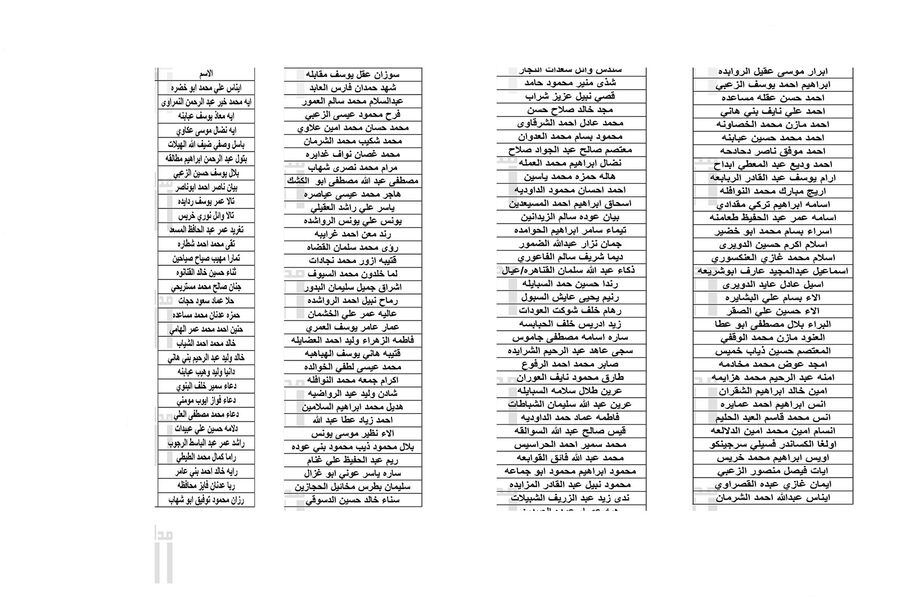 ابرار موسى عقيل الروابده
ابراهيم احمد يوسف الزعبي
احمد حسن عقله مساعده
احمد علي نايف بني هاني
احمد مازن محمد الخصاونه
احمد محمد حسين عبابنه
احمد موفق ناصر دحادحه
احمد وديع عبد المعطي ابداح
ارام يوسف عبد القادر الربابعه
اريج مبارك محمد النوافله
اسامه ابراهيم تركي مقدادي
اسامه عمر عبد الحفيظ طعامنه
اسراء بسام محمد ابو خضير
اسلام اكرم حسين الدويرى
اسلام محمد غازي العنكسوري
اسماعيل عبدالمجيد عارف ابوشريعه
اسيل عادل عايد الدويرى
الاء بسام علي البشايره
الاء حسين علي الصقر
البراء بلال مصطفى ابو عطا
العنود مازن محمد الوقفي
المعتصم حسين ذياب خميس
امجد عوض محمد مخادمه
امنه عبد الرحيم محمد هزايمه
امين خالد ابراهيم الشقران
انس ابراهيم احمد عمايره
انس محمد قاسم العبد الحليم
انسام امين محمد امين الدلالعه
اولغا الكساندر فسيلي سرجينكو
اويس ابراهيم محمد خريس
ايات فيصل منصور الزعبي
ايمان غازي عبده القصراوي
ايناس عبدالله احمد الشرمان
سندس وائل سعدات النجار
شذى منير محمود حامد
قصي نبيل عزيز شراب
مجد خالد صلاح حسن
محمد عادل احمد الشرقاوى
محمود بسام محمد العدوان
معتصم صالح عبد الجواد صلاح
نضال ابراهيم محمد العمله
هاله حمزه محمد ياسين
احمد احسان محمود الداوديه
اسحاق ابراهيم احمد المسيعدين
بيان عوده سالم الزيدانين
تيماء سامر ابراهيم الحوامده
جمان نزار عبدالله الضمور
ديما شريف سالم الفاعوري
ذكاء عبد الله سلمان القناهره/عيال
رندا حسين حمد السبايله
رنيم يحيى عايش السبول
رهام خلف شوكت العودات
زيد ادريس خلف الحبابسه
ساره اسامه مصطفى جاموس
سجى عاهد عبد الرحيم الشرايده
صابر محمد احمد الرفوع
طارق محمود نايف العوران
عرين طلال سلامه السبايله
عرين عبد الله سليمان الشباطات
فاطمه عماد حمد الداوديه
قيس صالح عبد الله السوالقه
محمد سمير احمد الحراسيس
محمد عبد الله فائق القوابعه
محمود ابراهيم محمود ابو جماعه
محمود نبيل عبد القادر المزايده
ندى زيد عبد الزريف الشبيلات
سوزان عقل يوسف مقابله
شهد حمدان فارس العابد
عبدالسلام محمد سالم العمور
فرح محمود عيسى الزعبي
محمد حسان محمد امين علاوي
محمد شكيب محمد الشرمان
محمد غصان نواف غدايره
مرام محمد نصري شهاب
مصطفى عبد الله مصطفى ابو الكشك
هاجر محمد عيسى عياصره
ياسر علي راشد العقيلي
يونس علي يونس الرواشده
رند معن احمد غرايبه
رؤى محمد سلمان القضاه
قتيبه ازور محمد نجادات
لما خلدون محمد السيوف
اشراق جميل سليمان البدور
رماح نبيل احمد الرواشده
عاليه عمر علي الخشمان
عمار عامر يوسف العمري
فاطمه الزهراء وليد احمد العضايله
قتيبه هاني يوسف الهباهبه
محمد عيسى لطفي الخوالده
اكرام جمعه محمد النوافله
شادن وليد عيد الرواضيه
هديل محمد ابراهيم السلامين
احمد زياد عطا عبد الله
الاء نظير موسى يونس
بلال محمود ذيب محمود بني عوده
ريم عبد الحفيظ علي غنام
ساره ياسر عوني ابو غزال
سليمان بطرس مخائيل الحجازين
سناء خالد حسين الدسوقي
الاسم
ايناس علي محمد ابو خضره
ايه محمد خير عبد الرحمن النمراوى
ايه معاذ يوسف عبابنه
ايه نضال موسى عكاوي
باسل وصفي ضيف الله الهيلات
بتول عبد الرحمن ابراهيم مطالقه
بلال يوسف حسين الزعبي
بيان ناصر احمد ابوناصر
تالا عمر يوسف ردايده
تالا وائل نوري خريس
تغريد عمر عبد الحافظ المسعد
تقى محمد احمد شطاره
تمارا مهيب صباح صباحين
ثناء حسين خالد القنانوه
جنان صالح محمد مستريحي
حلا عماد سعود حجات
حمزه عدنان محمد مساعده
حنين احمد محمد عمر الهامي
خالد محمد احمد الشياب
خالد وليد عبد الرحيم بني هاني
دانيا وليد وهيب عبابنه
دعاء سمير خلف البتوي
دعاء فواز ايوب مومني
دعاء محمد مصطفى العلي
دلامه حسين علي عبيدات
راشد عمر عبد الباسط الرجوب
راما كمال محمد الطيطي
رايه خالد احمد بني عامر
ربا عدنان فايز محافظه
رزان محمود توفيق ابو شهاب